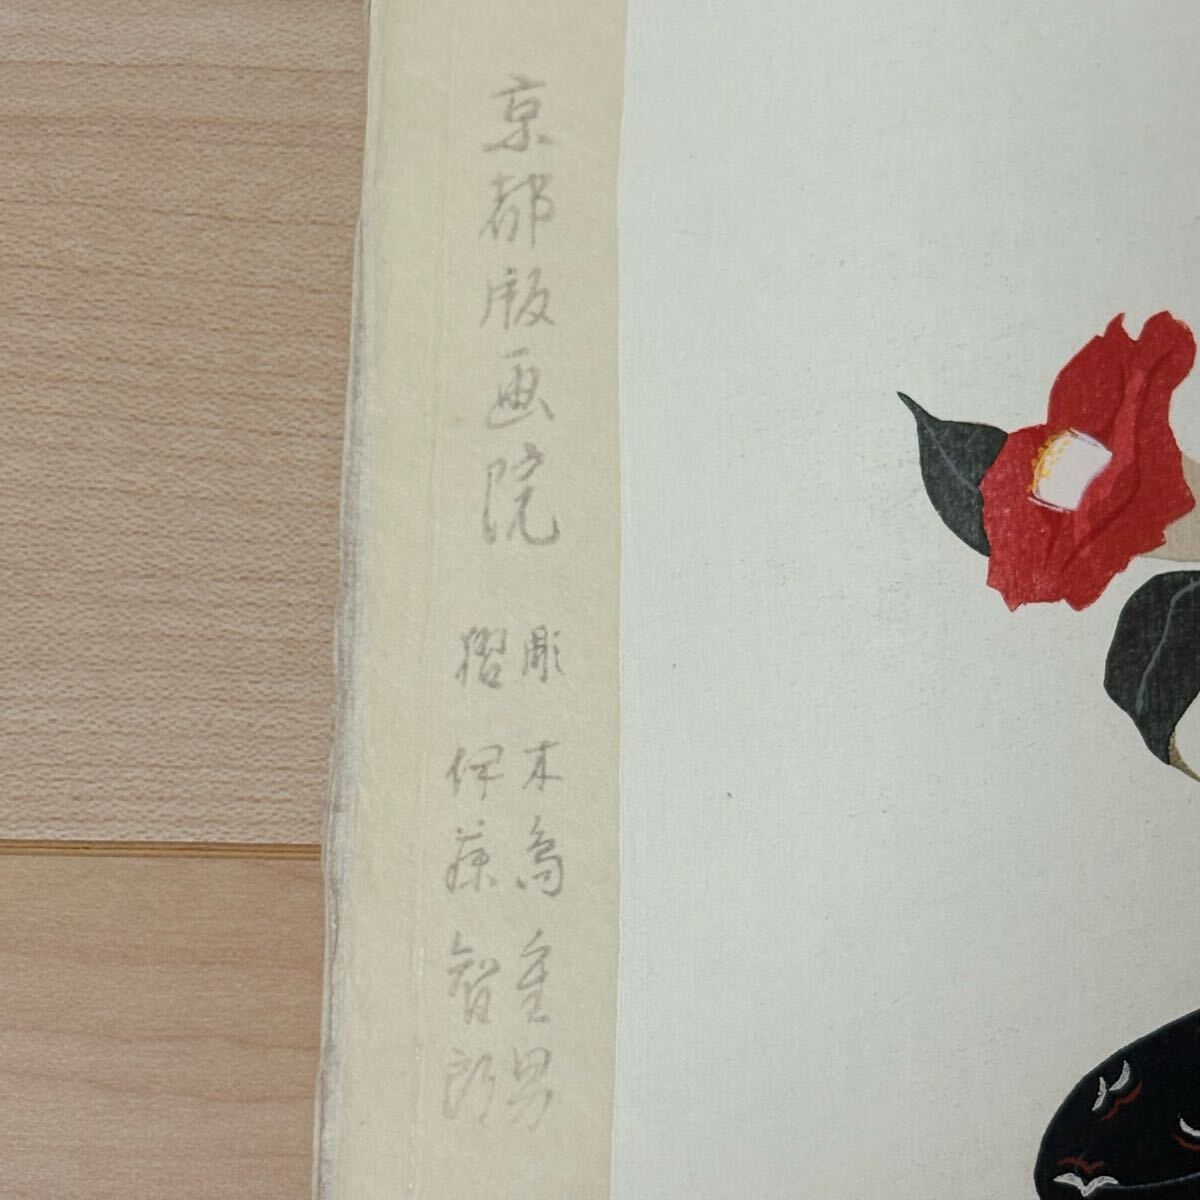 京都版画院
彫 木島重男
摺 伊藤智郎